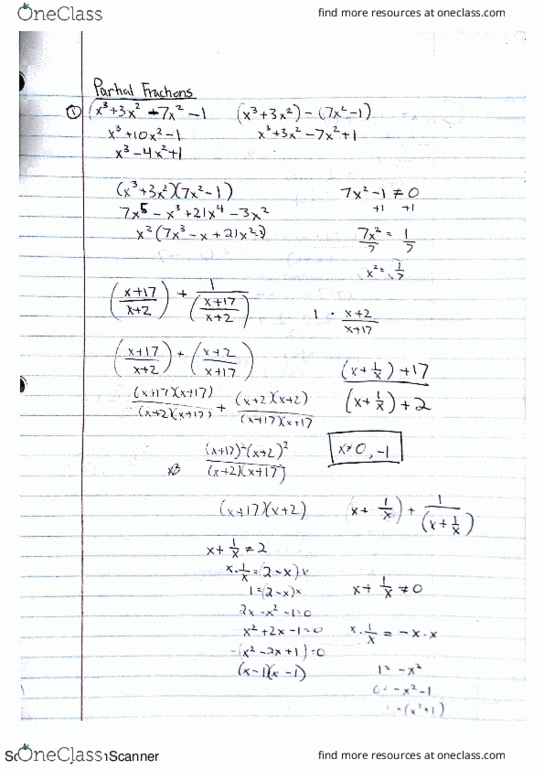 OneClass
find more resources at oneclass.com
Partial Fractions
① (x³+3x² + 7x² - 1   (x³+3x²) - (7x²-1)
x³+10x²-1   x³+3x²-7x²+1
x³-4x²+1
(x³+3x²)(7x²-1)   7x²-1 ≠ 0
7x⁵ - x³ + 21x⁴ - 3x²   +1 +1
x²(7x³ - x + 21x²-3)   7x²/7 = 1/7
x² = 1/7
((x+17)/(x+2)) + 1/((x+17)/(x+2))   1 · (x+2)/(x+17)
((x+17)/(x+2)) + ((x+2)/(x+17))   ((x+1/x)+17)/((x+1/x)+2)
(x+17)(x+17)/(x+2)(x+17) + (x+2)(x+2)/(x+17)(x+17
(x+17)²(x+2)²/(x+2)(x+17)   x≠0,-1
(x+17)(x+2)   (x+ 1/x) + 1/(x+1/x)
x+ 1/x ≠ 2
x·1/x=(2-x)x   x+ 1/x ≠ 0
1=(2-x)x
2x-x²-1=0
x²+2x-1=0   x·1/x = -x·x
-(x²-2x+1)=0
(x-1)(x-1)   1=-x²
0=-x²-1
=(x²+1)
OneClass
Scanner
find more resources at oneclass.com